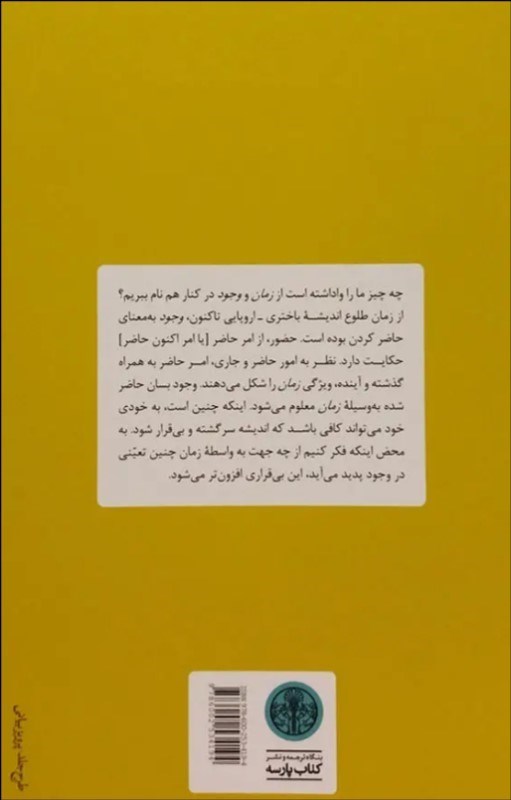 چه چیز ما را واداشته است از زمان و وجود در کنار هم نام ببریم؟
از زمان طلوع اندیشهٔ باختری - اروپایی تاکنون، وجود به‌معنای
حاضر کردن بوده است. حضور، از امر حاضر [یا امر اکنون حاضر]
حکایت دارد. نظر به امور حاضر و جاری، امر حاضر به همراه
گذشته و آینده، ویژگی زمان را شکل می‌دهند. وجود بسان حاضر
شده به‌وسیلهٔ زمان معلوم می‌شود. اینکه چنین است، به خودی
خود می‌تواند کافی باشد که اندیشه سرگشته و بی‌قرار شود. به
محض اینکه فکر کنیم از چه جهت به واسطهٔ زمان چنین تعیّنی
در وجود پدید می‌آید، این بی‌قراری افزون‌تر می‌شود.
بنگاه ترجمه و نشر
کتاب پارسه
طرح جلد: پرویز بیانی